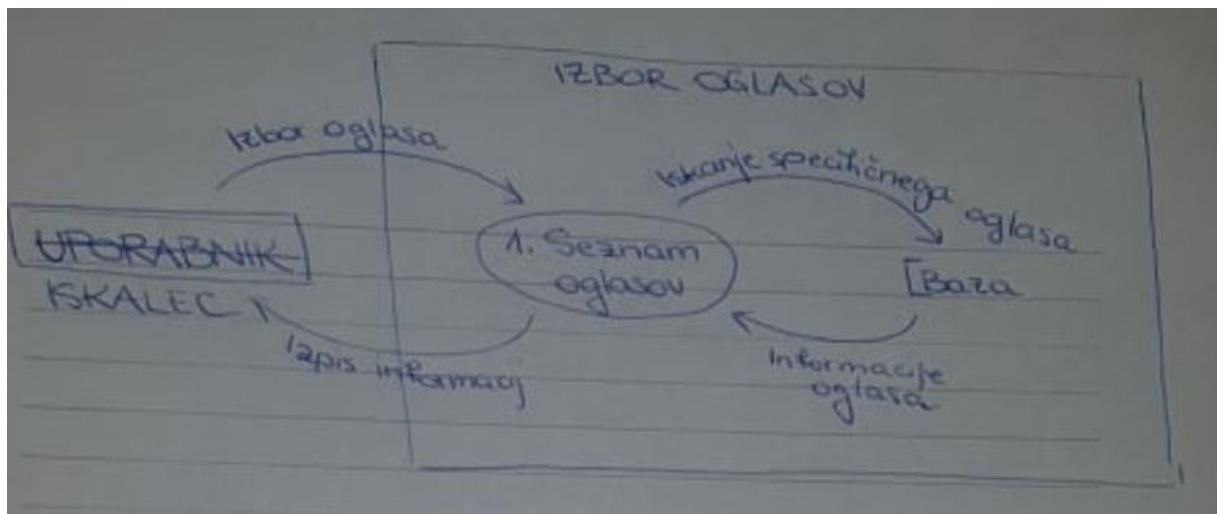 IZBOR OGLASOV
Izbor oglasa
Iskanje specifičnega
oglasa
UPORABNIK
ISKALEC
1. Seznam
oglasov
[Baza
Izpis informacij
Informacije
oglasa